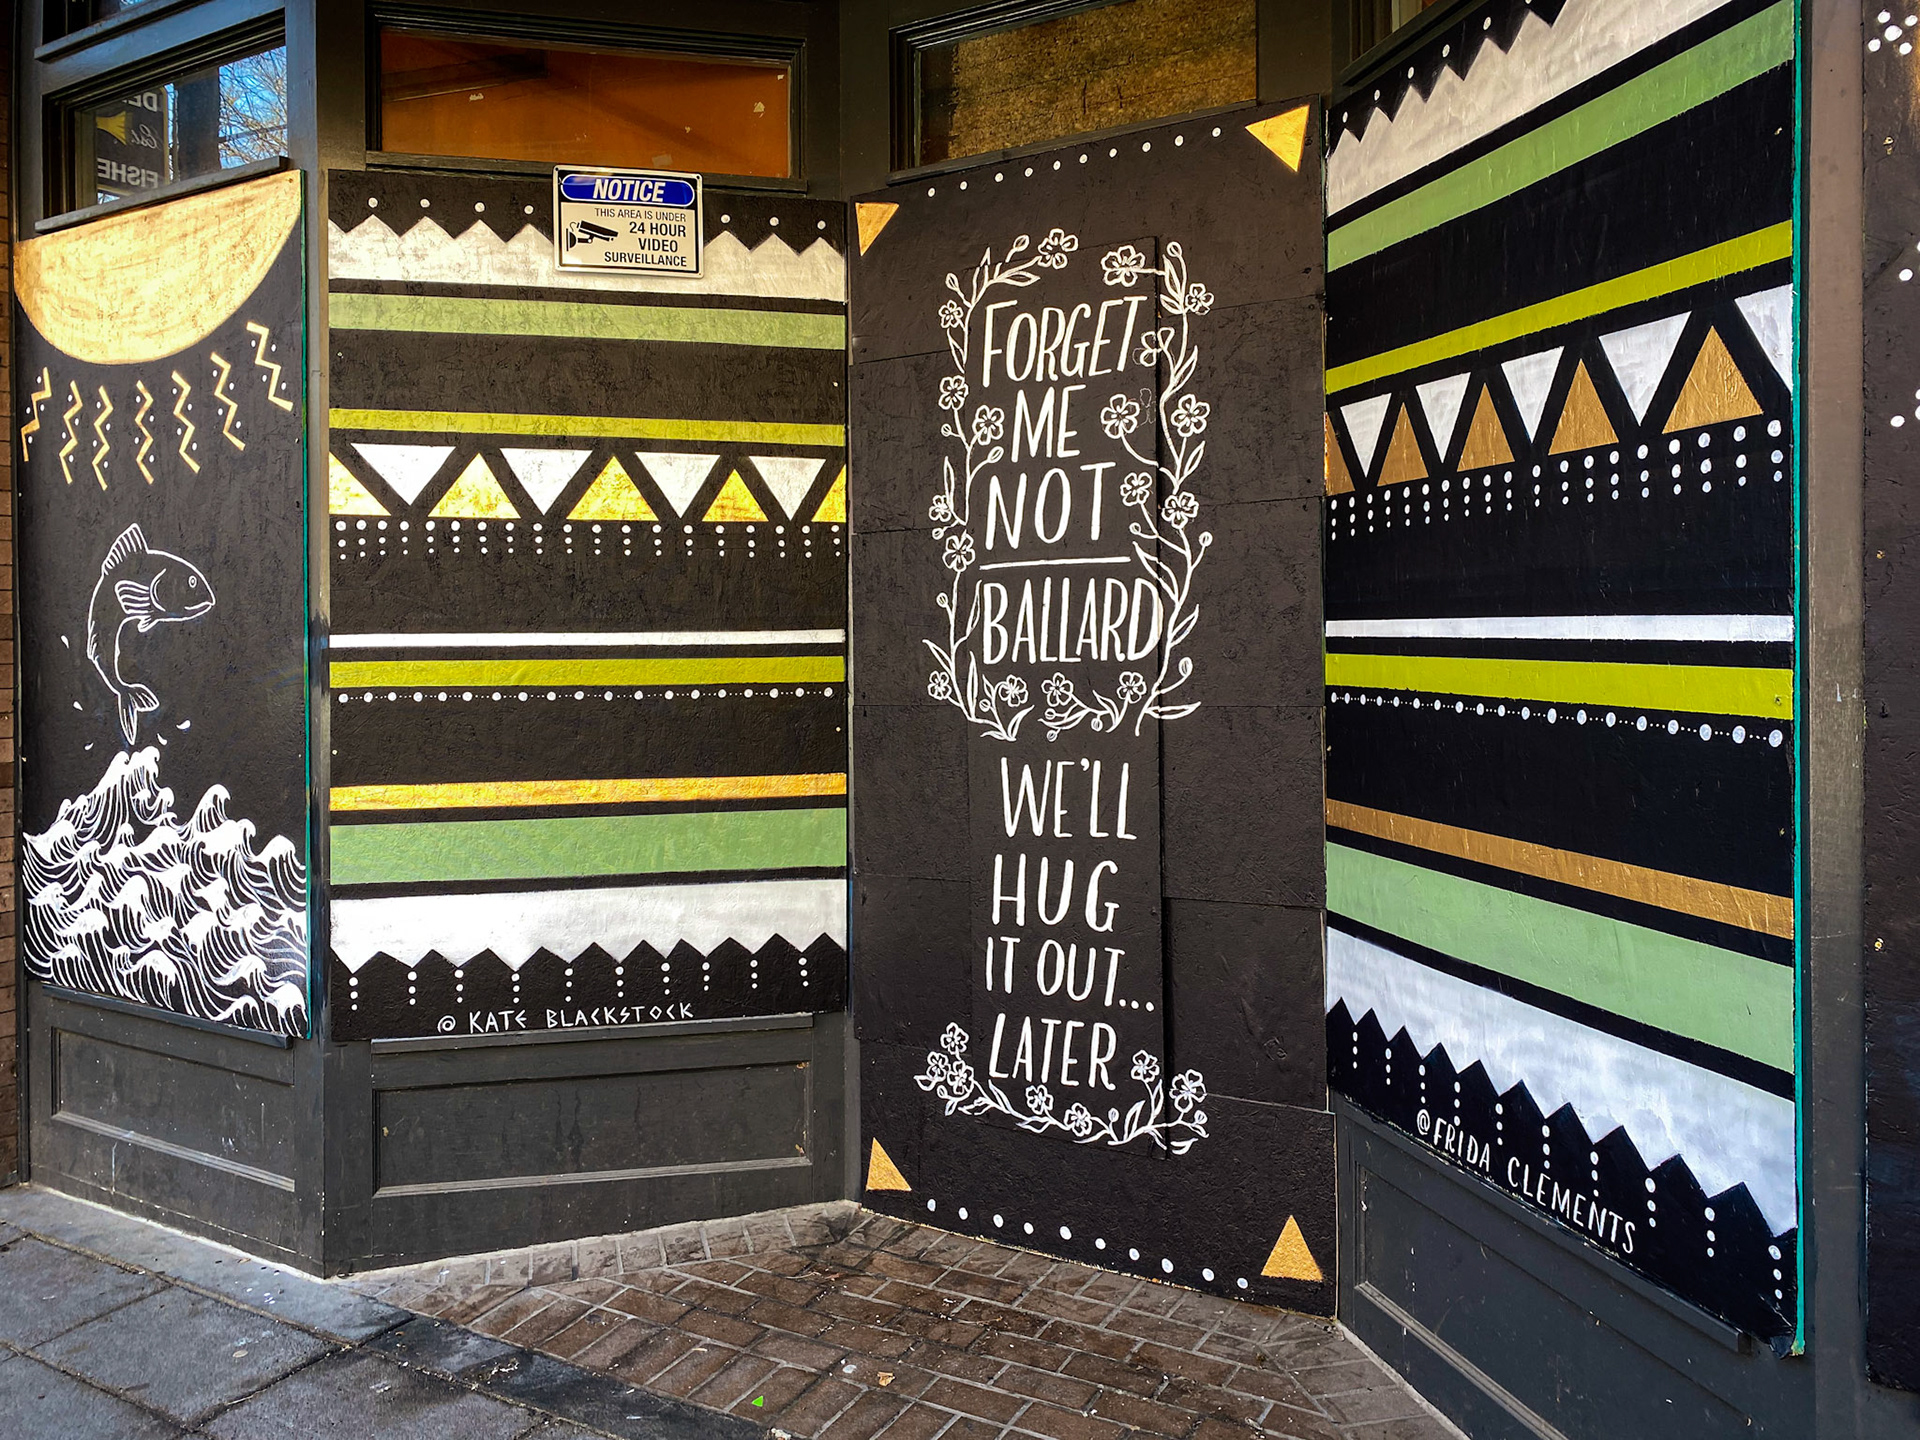 NOTICE
THIS AREA IS UNDER
24 HOUR
VIDEO
SURVEILLANCE
FORGET
ME
NOT
BALLARD
WE'LL
HUG
IT OUT...
LATER
@ KATE BLACKSTOCK
@FRIDA CLEMENTS